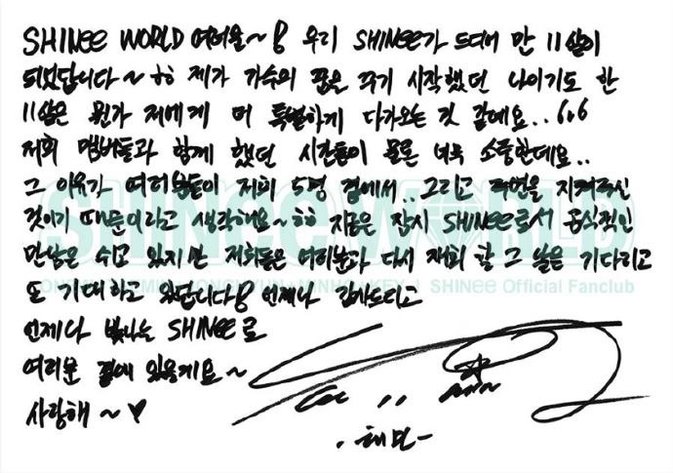 SHINee WORLD 여러분~! 우리 SHINee가 드디어 만 11살이
되었답니다~ㅎㅎ 제가 가수의 꿈을 꾸기 시작했던 나이기도 한
11살은 뭔가 저에게 더 특별하게 다가오는 것 같네요..
저희 멤버들과 함께 했던 시간들이 물론 너무 소중한데요..
그 이유가 여러분들이 저희 5명 곁에서.. 그리고 지켜주신
것이기 때문이라고 생각해요~ㅎㅎ 지금은 잠시 SHINee로서 공식적인
만남은 쉬고 있지만 저희들은 여러분과 다시 재회 할 그 날을 기다리고
또 기대 하고 있답니다! 언제나 감사드리고
언제나 빛나는 SHINee로
여러분 곁에 있을게요~
사랑해~♥
-태민-
SHINee WORLD
SHINee Official Fanclub